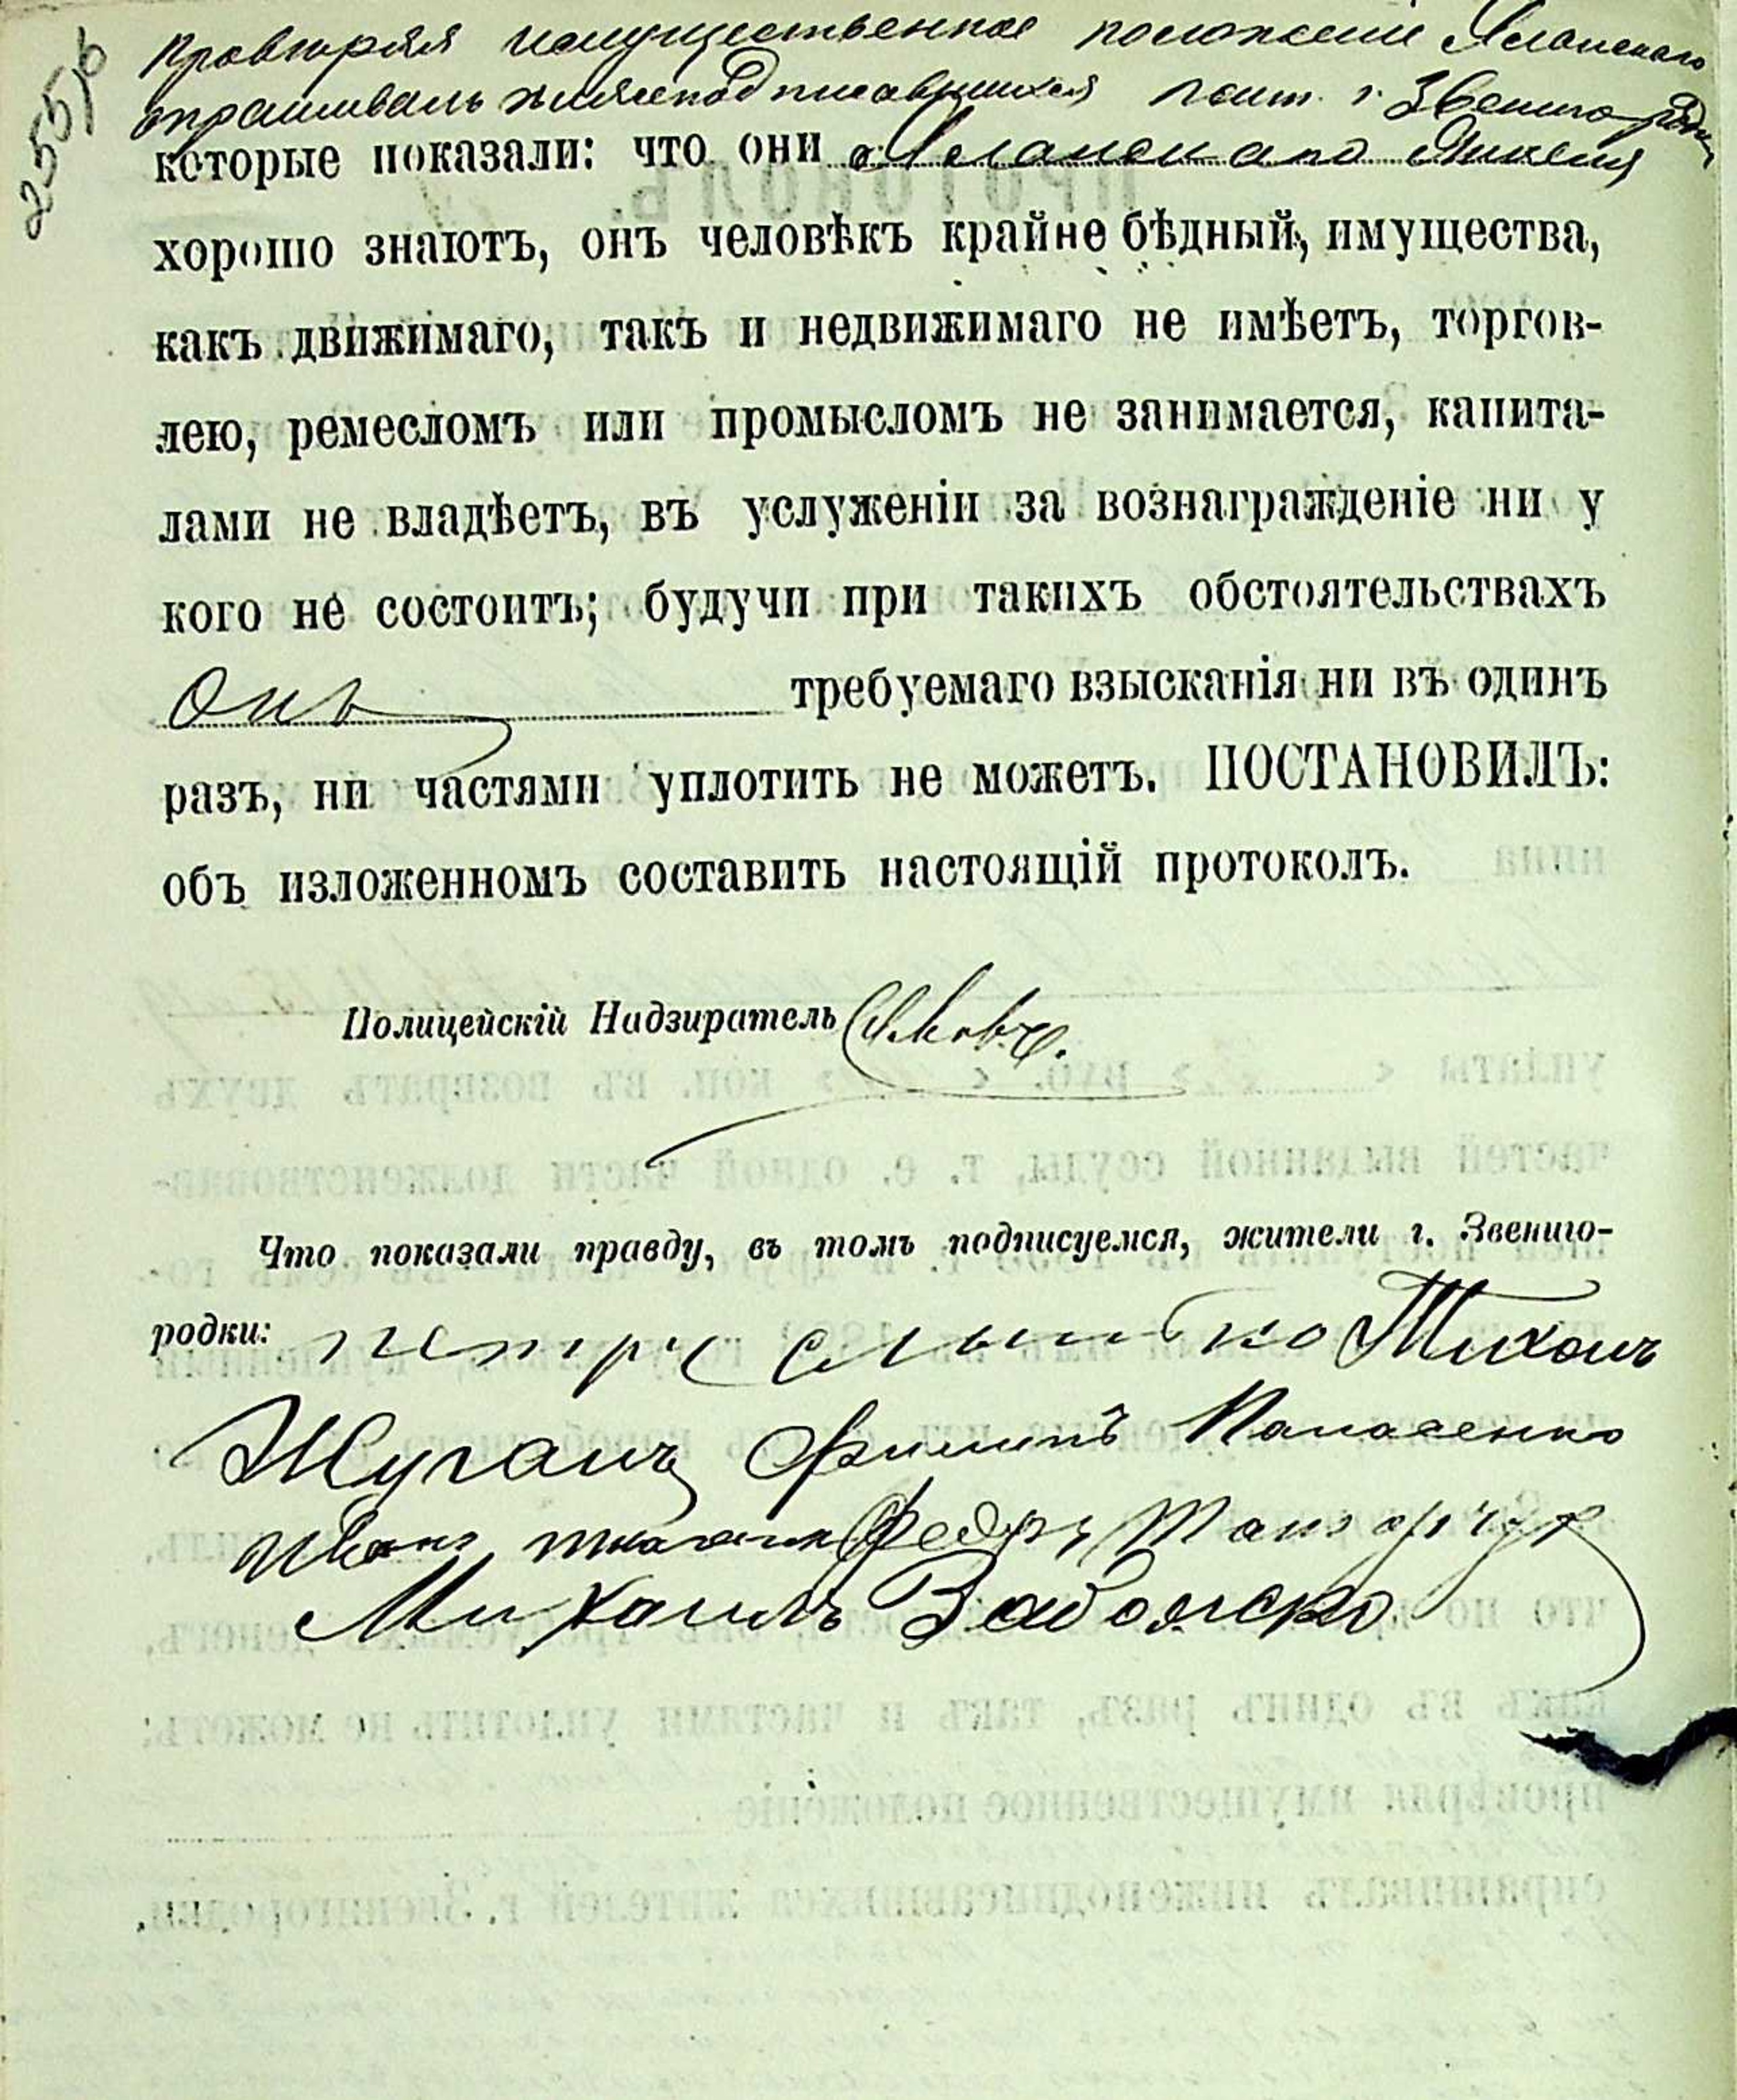 255/6
Провѣряя имущественное положеніе
опрашивалъ нижеподписавшихся жит. г. Звенигородки
которые показали: что они
хорошо знаютъ, онъ человѣкъ крайне бѣдный, имущества,
какъ движимаго, такъ и недвижимаго не имѣетъ, торгов-
лею, ремесломъ или промысломъ не занимается, капита-
лами не владѣетъ, въ услуженіи за вознагражденіе ни у
кого не состоитъ; будучи при такихъ обстоятельствахъ
Онъ требуемаго взысканія ни въ одинъ
разъ, ни частями уплотить не можетъ. ПОСТАНОВИЛЪ:
объ изложенномъ составить настоящій протоколъ.
Полицейскій Надзиратель
Что показали правду, въ томъ подписуемся, жители г. Звениго-
родки: петръ Тихонъ
Филипъ Панасенко
Иванъ Федръ
Михаилъ